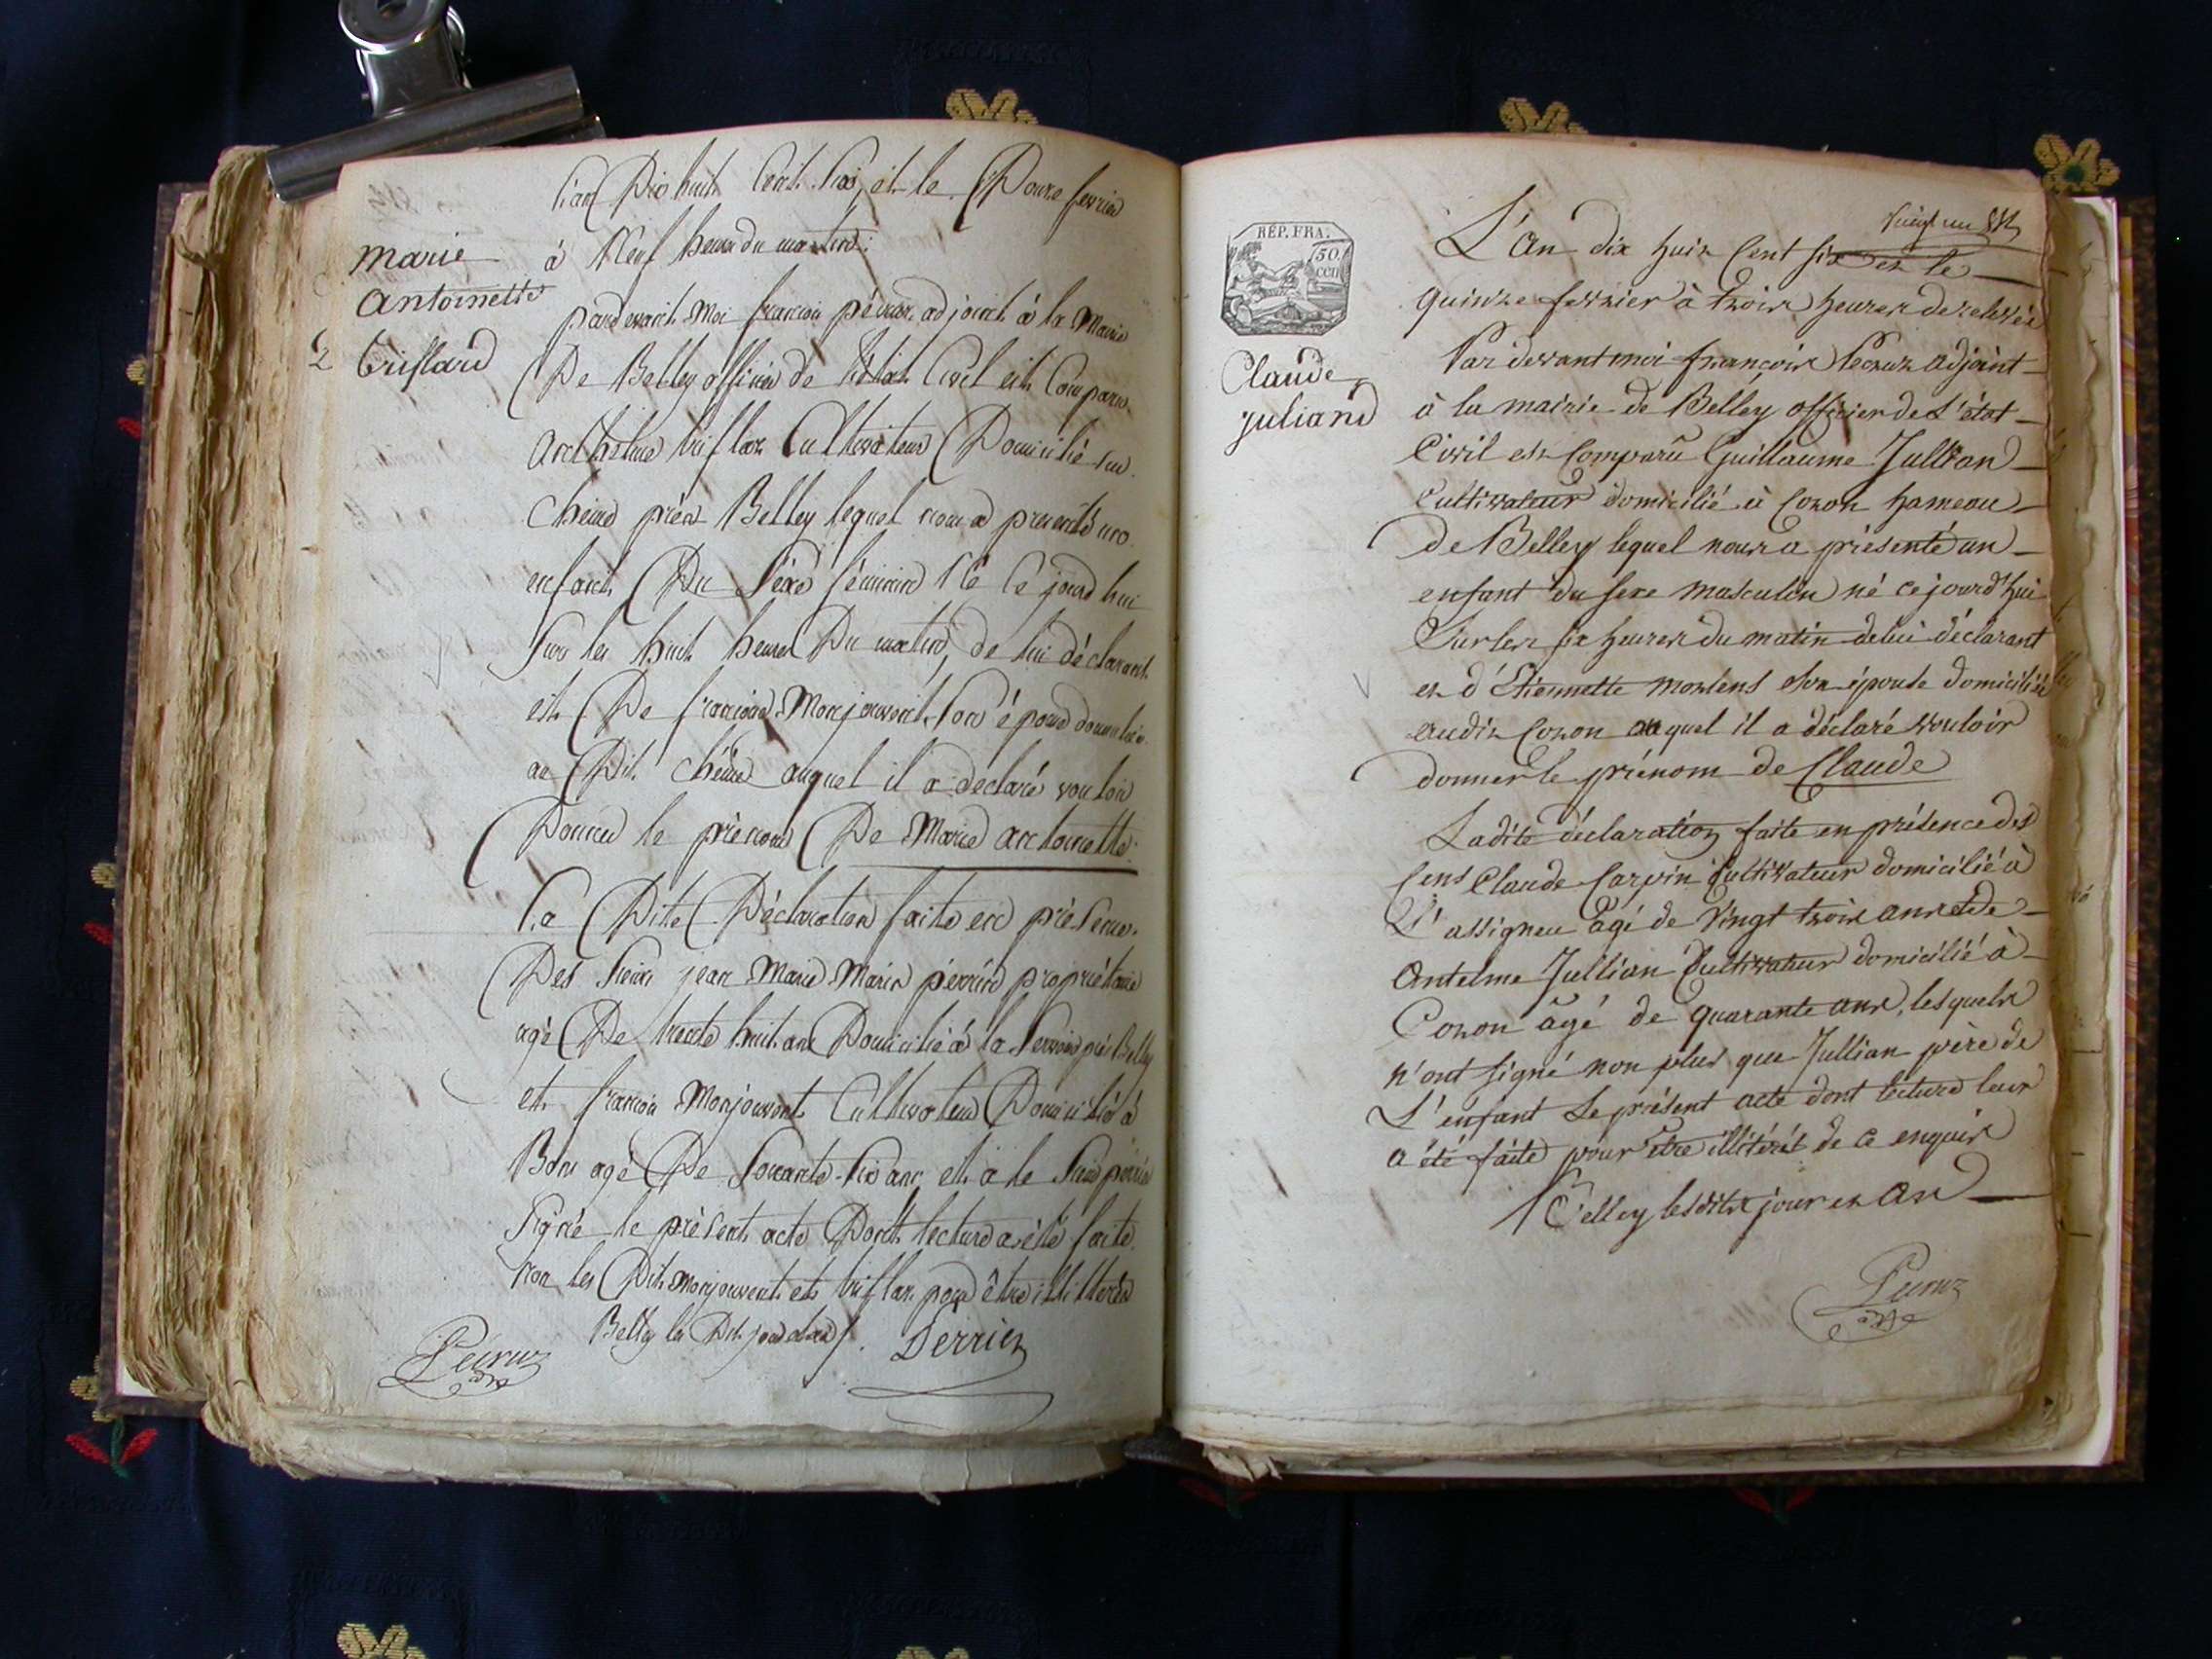 L'an Dix huit Cent Six, et le Douze fevrier
à Neuf heures du matin:
Marie
Antoinette
Triflard
pardevant Moi francois pécruz adjoint à la Mairie
De Belley officier de l'état Civil est Comparu
Anthelme triflar Cultivateur Domicilié au
Chêne près Belley lequel nous a presenté un
enfant Du Séxe féminin Né Ce jourd'hui
Sur les huit heures Du matin, de lui déclarant
et De françoise Monjouvent Son épouse domiciliée
au Dit Chêne auquel il a déclaré vouloir
Donner le prénom De Marie antoinette.
La Dite Déclaration faite en présence
Des Sieurs jean Marie Marin perrin propriétaire
agé De trente huit ans Domicilié à la près Belley
et francois Monjouvent Cultivateur Domicilié à
Bons agé De Soixante Six ans, et a le Sieur perrin
Signé le présent acte Dont lecture a été faite
non les Dits Monjouvent et triflar pour être illitterés
Belley les Dits jour et an
Pécruz Perrin
adj
Vingt un
RÉP. FRA.
50
cen
L'an dix huit Cent Six et le
quinze fevrier à trois heures de relevée
Claude
Juliand
Par devant moi françois Pecruz adjoint
à la mairie de Belley officier de L'état
Civil est Comparu Guillaume Jullian
Cultivateur domicilié à Coron hameau
de Belley lequel nous a présenté un
enfant du sexe masculin né ce jourd'hui
Sur les six heures du matin de lui déclarant
et d'Etiennette son épouse domiciliée
audit Coron auquel il a déclaré vouloir
donner le prénom de Claude
Ladite déclaration faite en présence des
Cens Claude Carvin Cultivateur domicilié à
L'assigneu âgé de Vingt trois ans et de
Antelme Jullian Cultivateur domicilié à
Coron âgé de quarante ans, lesquels
n'ont signé non plus que Jullian père de
L'enfant Le présent acte dont lecture leur
a été faite pour être illitérés de ce enquis
Belley lesdits jour et an
Pecruz
adj